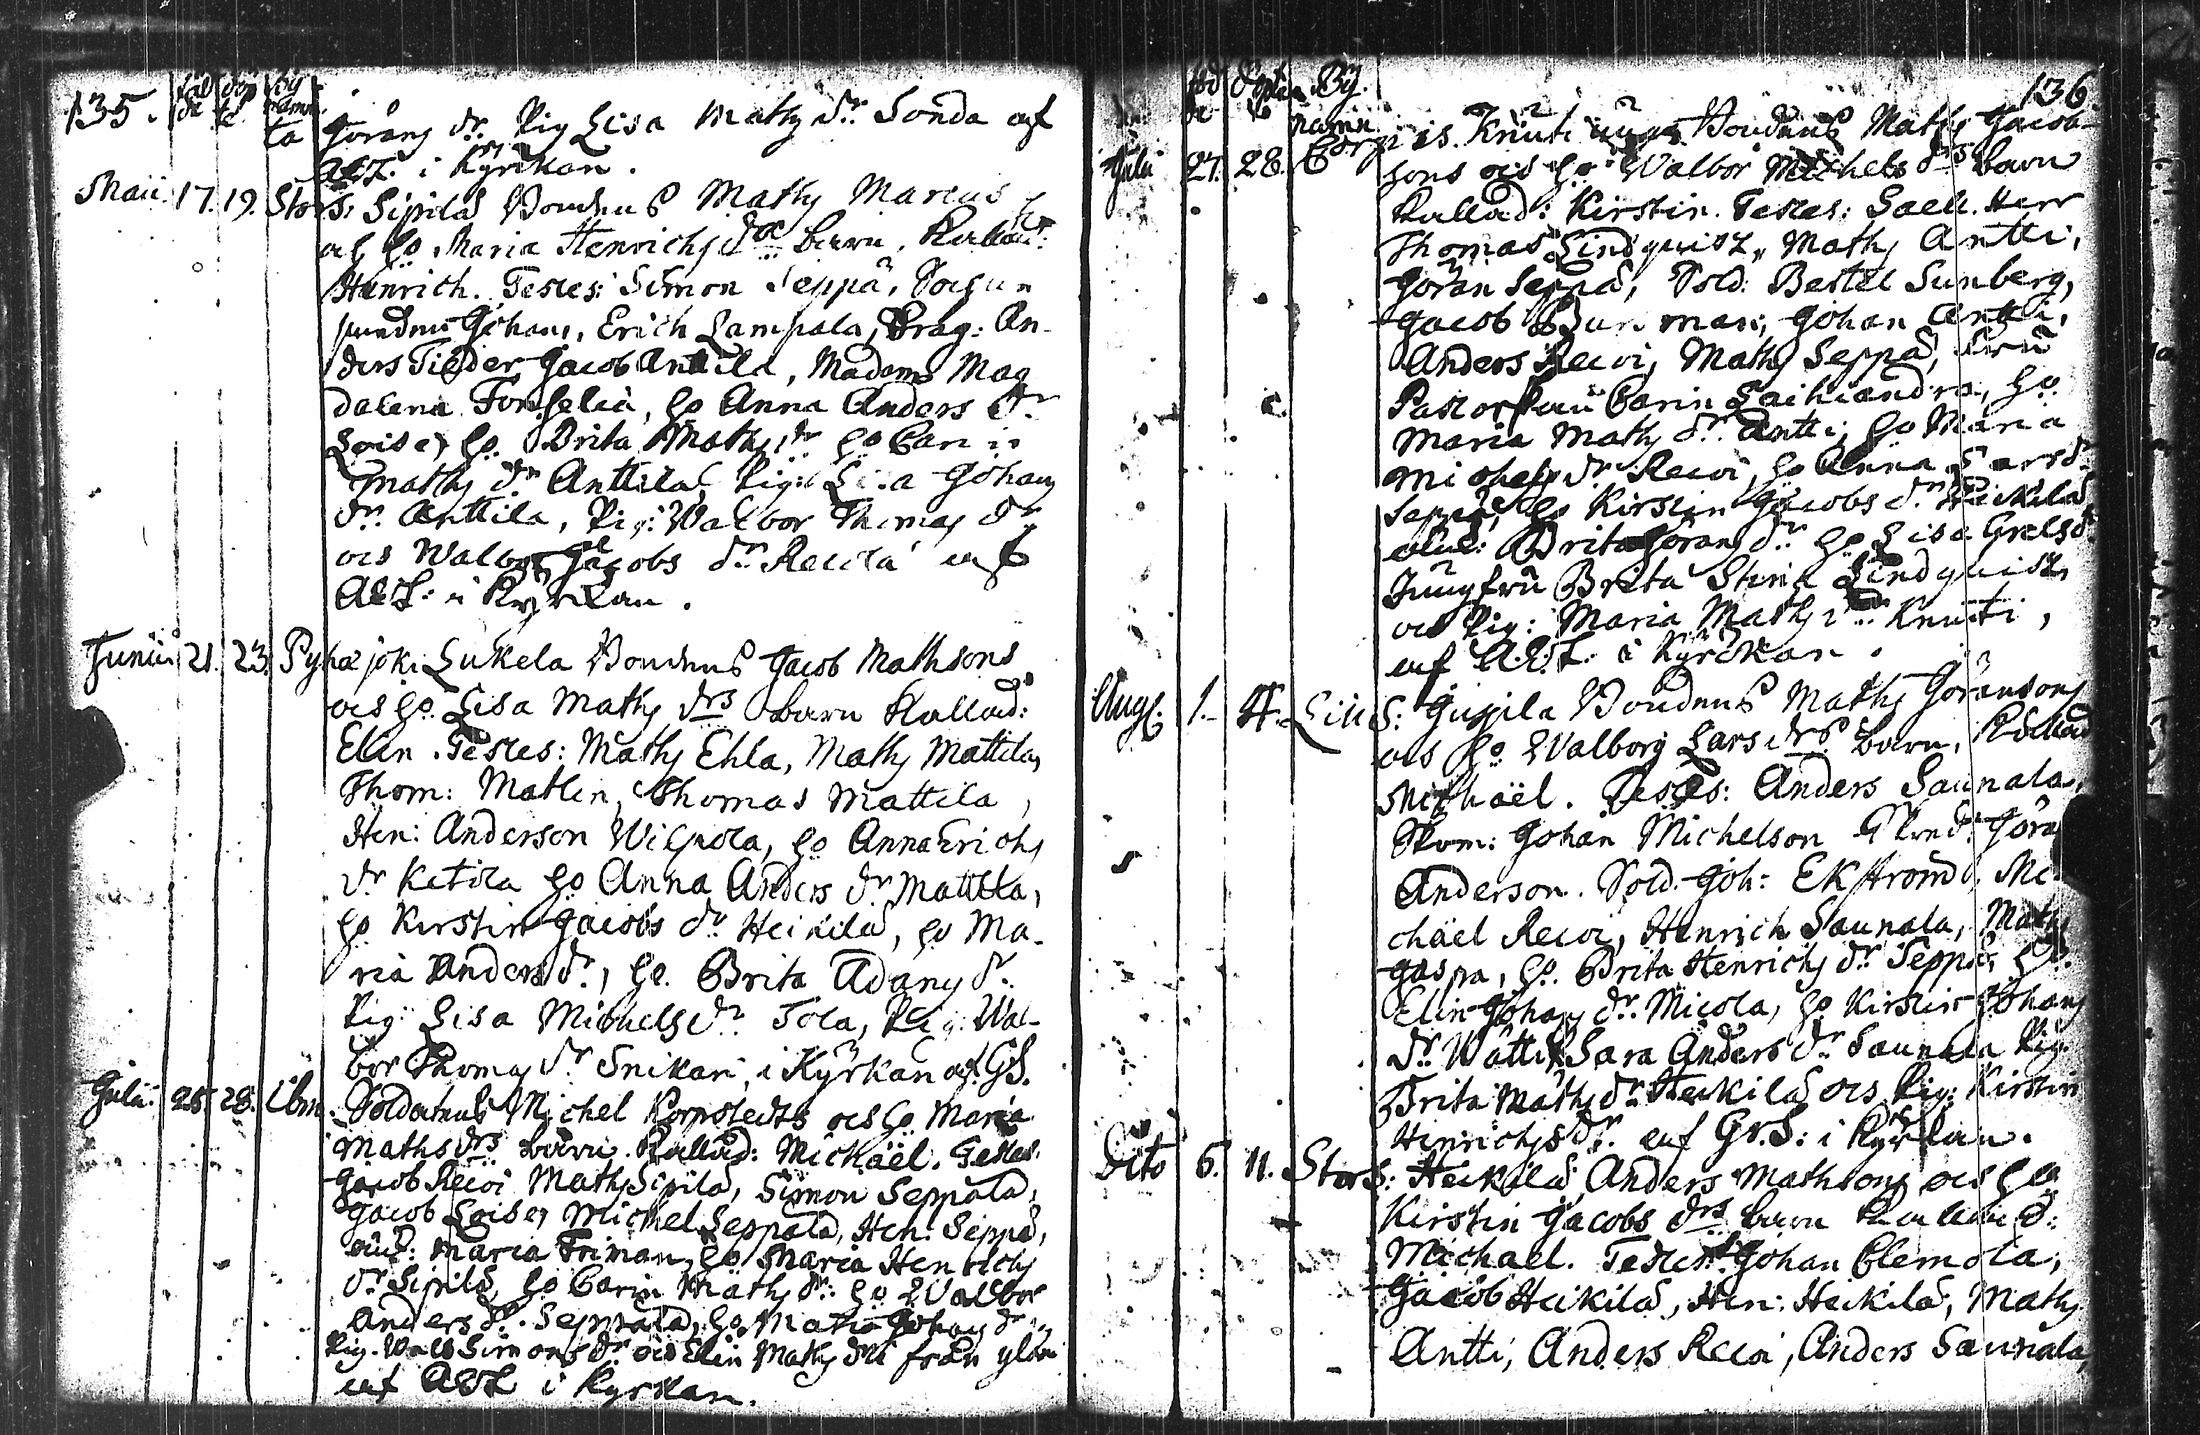 135.
föd de döp te by namn
ta Jörans dr. Pig Lisa Maths dr. Sonda af
i Kyrkan.
Maii 17. 19. Stors: Sipilä Bondens Maths Marcus
och ho Maria Henrichs drs barn, Kallad:
Henrich. Testes: Simon Seppä,
Johans, Erich Lampala, Drag: An-
ders Jacob Anttila, Madame Mag
dalena Forselia, ho Anna Anders dr
Loise, ho Brita Maths dr ho Carin
Maths dr Anttila, Pig: Lisa Johans
dr. Anttila, Pig: Walbor Thomas dr
ocs Walbor Jacobs dr af
i Kyrkan.
Junii 21. 23. Pyhæjoki Lukela Bondens Jacob Mathsons
ocs ho Lisa Maths drs barn Kallad:
Elin. Testes: Maths Ehla, Maths Mattila,
Thom: Matlin, Thomas Mattila,
Hen: Anderson Wilpola, ho Anna Erichs
dr Ketola ho Anna Anders dr Mattila,
ho Kirstin Jacobs dr Heikilä, ho Ma-
ria Anders dr, ho. Brita Adams dr.
Pig: Lisa Michels dr Tola, Pig: Wal-
bor Thomas dr Snikari, i Kyrkan af GS.
Julii 25. 28. Ibm. Soldatens Michel Kornstedts ocs ho Maria
Maths drs barn. Kallad: Mickaël. Testes.
Jacob Recoi Maths Sipilä, Simon Seppälä,
Jacob Loise, Michel Seppälä, Hen: Seppä,
Maria ho Maria Henrichs
dr Sipilä, ho Carin Maths dr: ho Walbor
Anders dr. Seppälä, ho Maria Johans dr
Pig. Walb Simons dr ocs Elin Maths dr från
af i Kyrkan.
136.
föd de döpte By namn
Knuti unga Bondens Maths Jacob-
Julii 27. 28. sons ocs ho Walbor Michels drs barn
Kallad: Kirstin. Testes: Sacell. Herr
Thomas Lindquist, Maths Antti,
Jöran Seppä, Sold: Bertel Sunberg,
Jacob Johan Antti,
Anders Recoi, Maths Seppä, Fru
Carin ho
Maria Maths dr. Antti, ho Maria
Michels dr. Recoi, ho Anna Lars dr.
Seppä, ho Kirstin Jacobs dr. Heikilä
Brita Jörans dr. ho Lisa Grels dr
Jungfru Brita Stina Lindquist,
ocs Pig: Maria Maths dr. Knuti,
af i Kyrckan.
Aug: 1. 4. Liu S: Juppila Bondens Maths Göransons
ocs ho Walborg Lars drs barn, Kallad
Michaël. Testes: Anders Saunala,
Johan Michelson Göran
Anderson. Sold. Joh: Ekstrom, Mi-
chäel Recoi, Henrich Saunala, Maths
Jaspa, ho. Brita Henrichs dr Seppä, ho.
Elin Johans dr. Micola, ho Kirstin Johans
dr. Sara Anders dr Saunala Pig:
Brita Maths dr. Heikilä ocs Pig: Kirstin
Henrichs dr. af Gr.S: i Kyrkan.
Dito 6. 11. Stor S: Heikilä Anders Mathsons ocs ho
Kirstin Jacobs drs barn Kallad:
Michael. Testes: Johan Clemola,
Jacob Heikilä, Hen: Heikilä, Maths
Antti, Anders Recoi, Anders Saunala,